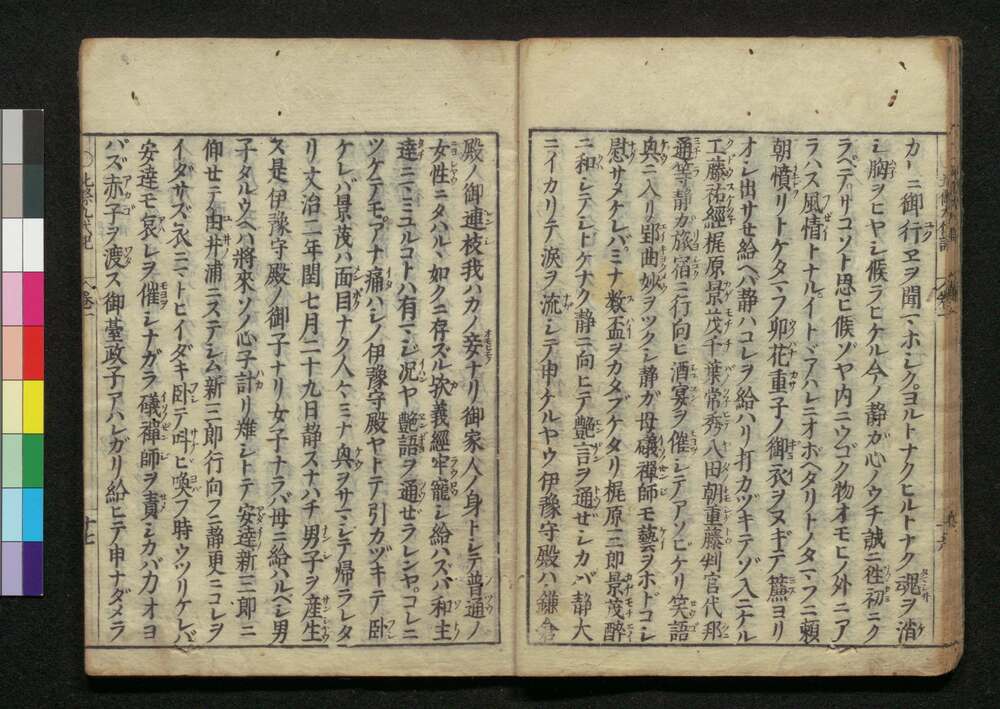 カタニ御行ヱヲ聞マホシク。ヨルトナクヒルトナク魂ヲ消
シ胸ヲヒヤシ候ラヒケル今ノ静ガ心ノウチ誠ニ徃初ニク
ラベテ。サコソト思ヒ候ゾヤ内ニウゴク物オモヒノ外ニア
ラハス風情トナル。イトヾアハレニオホヘタリトノタマフニ頼
朝憤リトケタマフ卯花重子ノ御衣ヲヌギテ簾ヨリ
オシ出サセ給ヘバ静ハコレヲ給ハリ打カヅキテゾ入ニケル
工藤祐經梶原景茂千葉常秀八田朝重藤判官代那
通等静カ旅宿ニ行向ヒ酒宴ヲ催シテアソビケリ笑語
奥ニ入リ郢曲妙ヲツクシ静ガ母礒禪師モ藝ヲホドコシ
慰サメケレバ。ミナ数盃ヲカタブケタリ梶原三郎景茂醉
ニ和シテシドケナク静ニ向ヒテ艶言ヲ通ゼシカバ静大
ニイカリテ涙ヲ流シテ申ケルヤウ伊豫守殿ハ鎌倉
殿ノ御連枝我ハカノ妾ナリ御家人ノ身トシテ普通ノ
女性ニタハル如クニ存ズル欤義經牢籠シ給ハズバ和主
達ニマミユルコトハ有マジ况ヤ艶語ヲ通ゼラレンヤ。コレニ
ツケテモアナ痛ハシノ伊豫守殿ヤトテ引カヅキテ卧
ケレバ景茂ハ面目ナク人々ミナ興ヲサマシテ帰ラレタ
リ文治二年閏七月二十九日静スナハチ男子ヲ産生
ス是伊豫守殿ノ御子ナリ女子ナラバ母ニ給ハルベシ男
子タルウヘハ將來ソノ心子計リ難シトテ安達新三郎ニ
仰セテ由井浦ニステシム新三郎行向フニ静更ニコレヲ
イダサズ衣ニマトヒイダキ卧テ叫ビ喚フ時ウツリケレバ
安達モ哀レヲ催シナガラ礒禪師ヲ責シカバ力オヨ
バズ赤子ヲ渡ス御臺政子アハレガリ給ヒテ申ナダメラ
十七